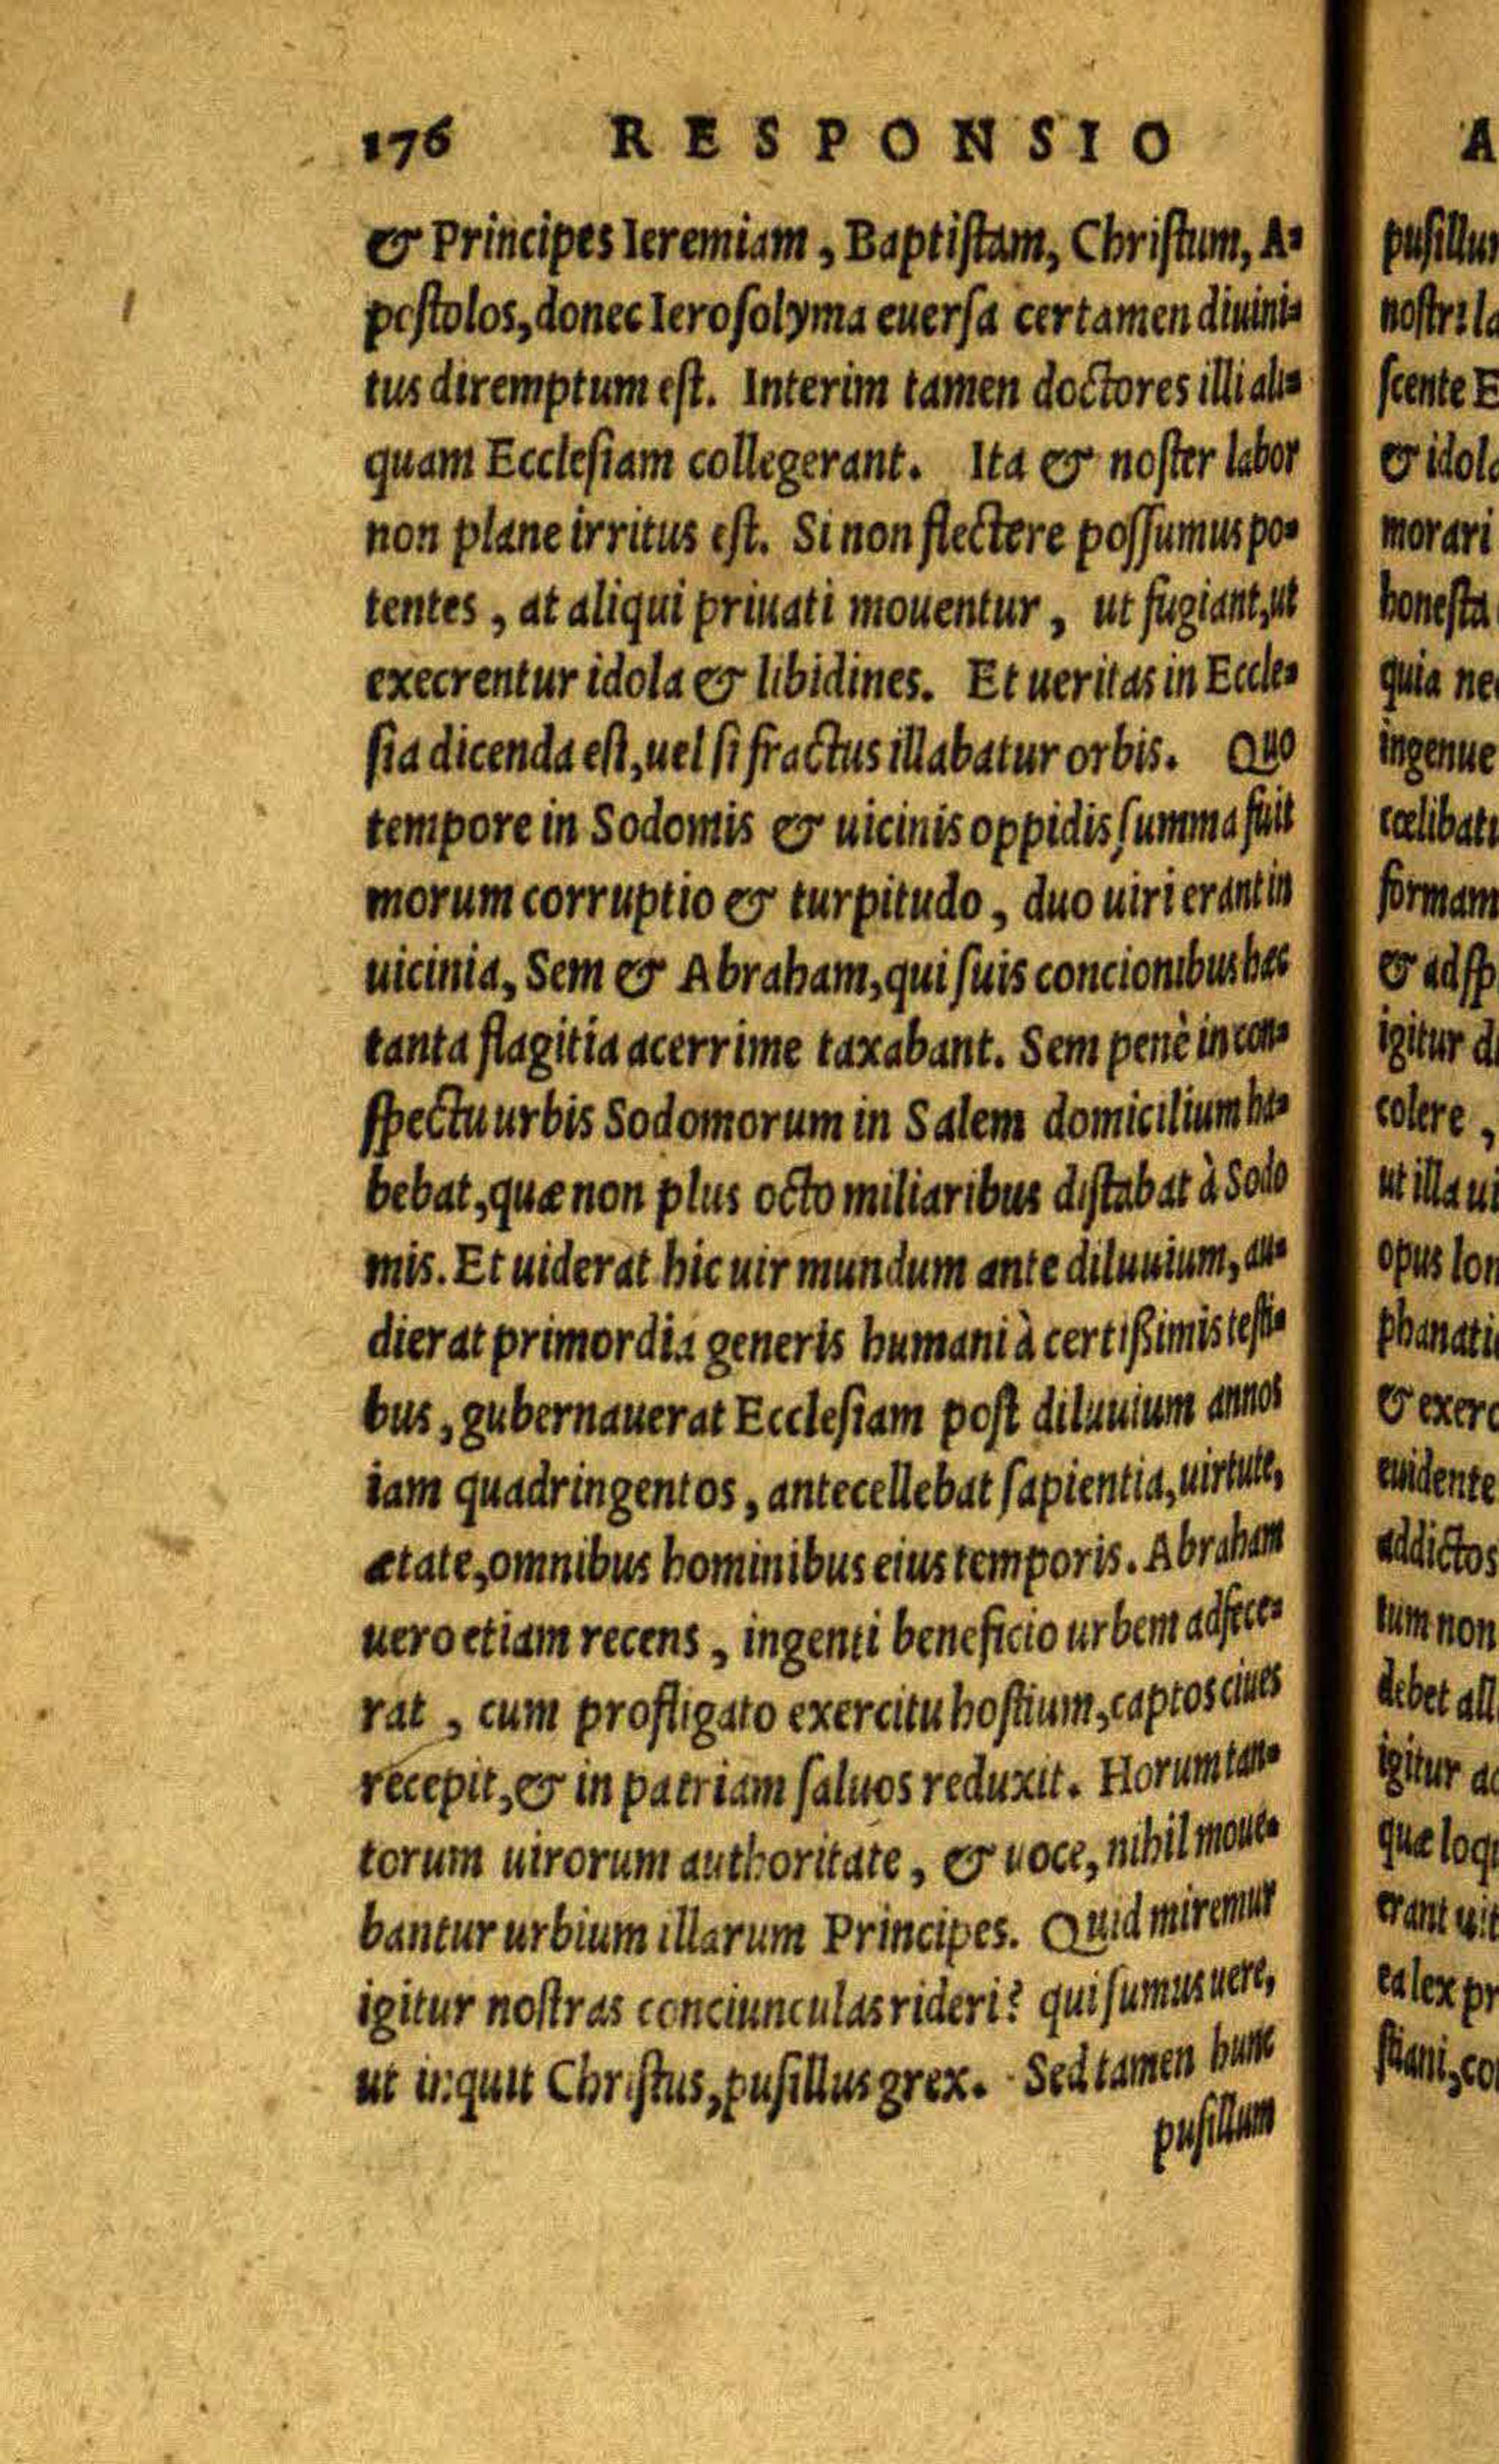 176 RESPONSIO
& Principes Ieremiam, Baptistam, Christum, A-
postolos, donec Ierosolyma euersa certamen diuini-
tus diremptum est. Interim tamen doctores illi ali-
quam Ecclesiam collegerant. Ita & noster labor
non plane irritus est. Si non flectere possumus po-
tentes, at aliqui priuati mouentur, ut fugiant, ut
execrentur idola & libidines. Et ueritas in Eccle-
sia dicenda est, uel si fractus illabatur orbis. Quo
tempore in Sodomis & uicinis oppidis summa fuit
morum corruptio & turpitudo, duo uiri erant in
uicinia, Sem & Abraham, qui suis concionibus hæc
tanta flagitia acerrime taxabant. Sem penè in con-
spectu urbis Sodomorum in Salem domicilium ha-
bebat, quæ non plus octo miliaribus distabat à Sodo
mis. Et uiderat hic uir mundum ante diluuium, au-
dierat primordia generis humani à certißimis testi-
bus, gubernauerat Ecclesiam post diluuium annos
iam quadringentos, antecellebat sapientia, uirtute,
ætate, omnibus hominibus eius temporis. Abraham
uero etiam recens, ingenti beneficio urbem adfece-
rat, cum profligato exercitu hostium, captos ciues
recepit, & in patriam saluos reduxit. Horum tan-
torum uirorum authoritate, & uoce, nihil moue-
bantur urbium illarum Principes. Quid miremur
igitur nostras conciunculas rideri? qui sumus uere,
ut inquit Christus, pusillus grex. Sed tamen hunc
pusillum
A
pusillu
nostri la
scente E
& idol
morari
honesta
quia ne
ingenue
cœlibat
formam
& ad sp
igitur d
colere,
ut illa ui
opus lon
phanati
& exerc
euidente
addictos
tum non
debet all
igitur ac
quæ loq
erant uit
ea lex pr
stiani, co